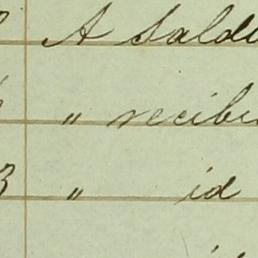 A Sald
" recibi
3 " id